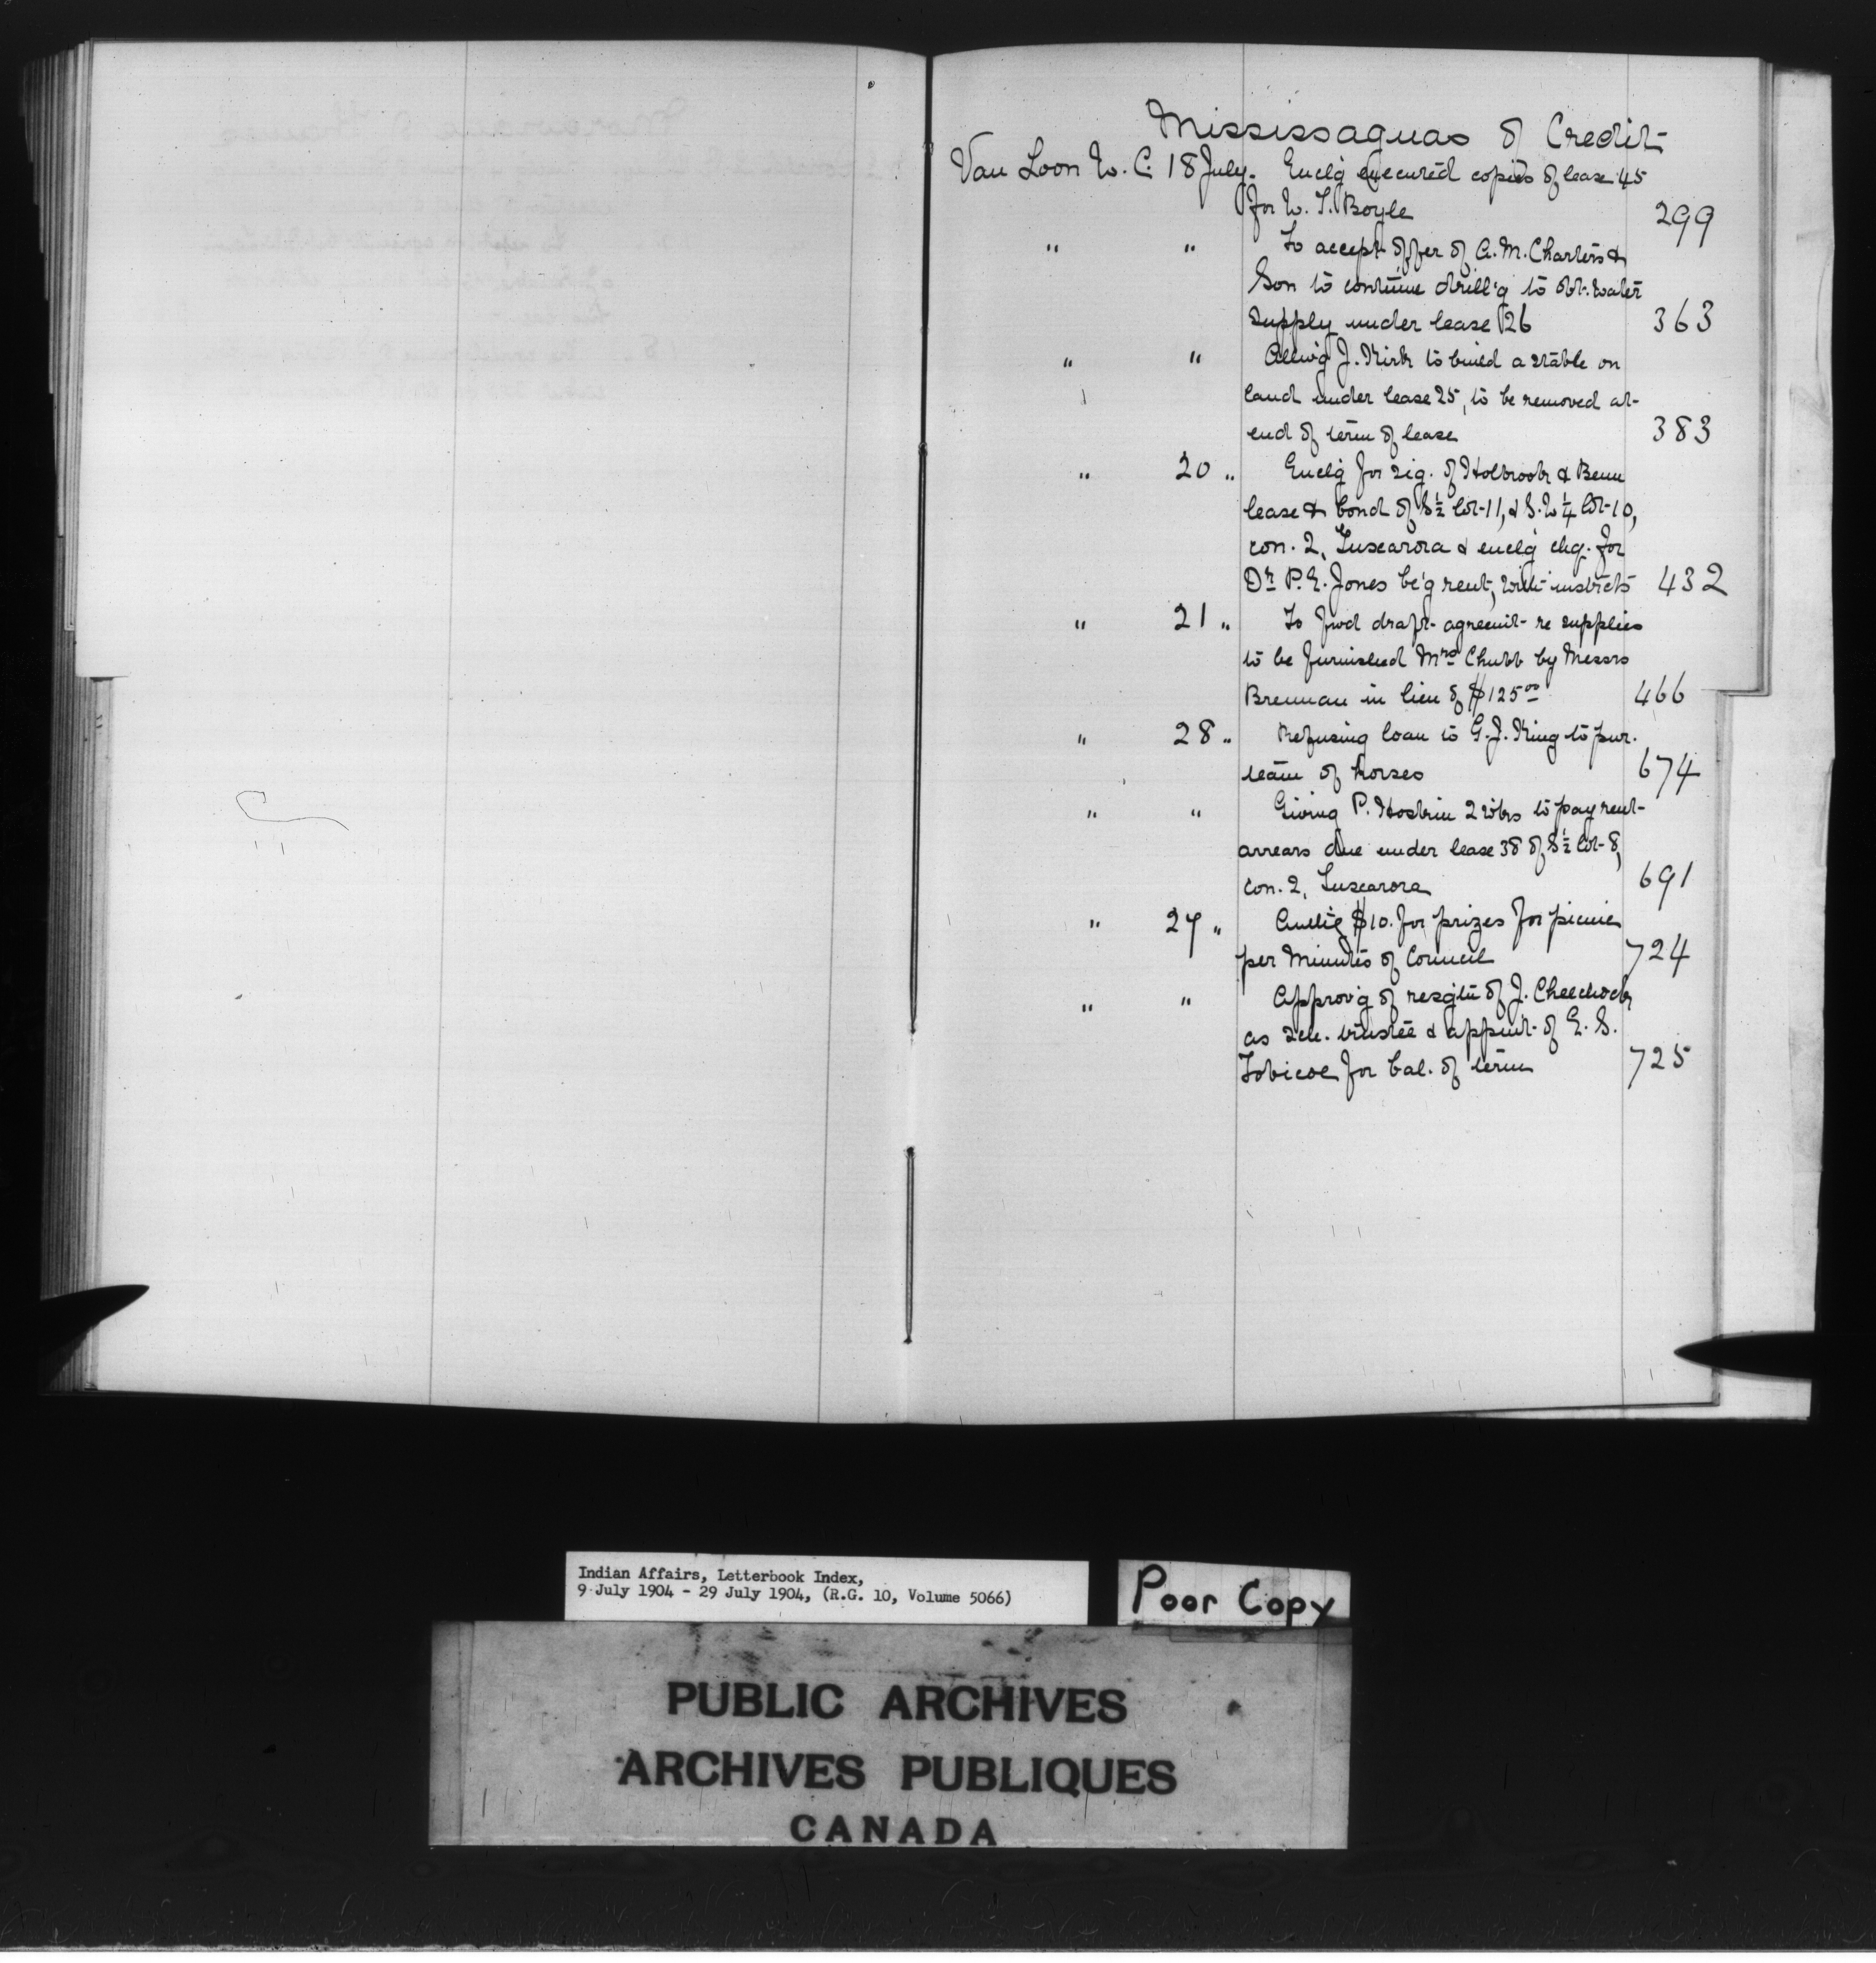 Mississaguas of Credit
Van Loon W. C. 18 July. Encl'g executed copies of lease 45
for W. T. Boyle 299
" " To accept offer of A. M. Charters &
Son to continue drill'g to obt. water
supply under lease 26 363
" " Allow'g J. Kirk to build a stable on
land under lease 25, to be removed at
end of term of lease 383
" 20 " Encl'g for sig. of Holbrook & Benn
lease & bond of S½ lot 11, & S.W¼ lot 10,
con. 2, Tuscarora & encl'g chq. for
Dr. P. E. Jones be'g rent, with instrcts 432
" 21 " To fwd draft agreemt re supplies
to be furnished Mrs Chubb by Messrs
Brennan in lieu of $125.00 466
" 28 " Refusing loan to G. J. King to pur.
team of horses 674
" " Giving P. Hoskin 2 wks to pay rent
arrears due under lease 38 of S½ lot 8,
con. 2, Tuscarora 691
" 27 " $10. for prizes for picnic
per Minutes of Council 724
" " Approv'g of resgtn of J. Cheechock
as sch. trustee & appmt of E. S.
Tobicoe for bal. of term 725
Indian Affairs, Letterbook Index,
9 July 1904 - 29 July 1904, (R.G. 10, Volume 5066)
Poor Copy
PUBLIC ARCHIVES
ARCHIVES PUBLIQUES
CANADA